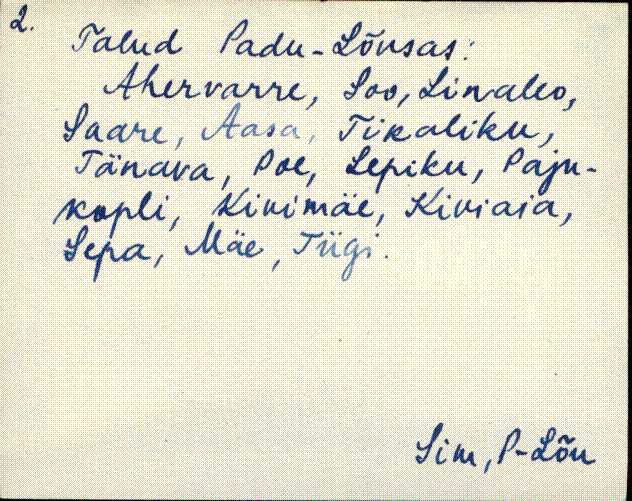 2.
Talud Padu-Lõusas:
Ahervarre, Soo, Linaleo,
Saare, Aasa, Tikaliku,
Tänava, Poe, Lepiku, Paju-
kopli, Kivimäe, Kiviaia,
Sepa, Mäe, Tiigi.
Sim, P-Lõu